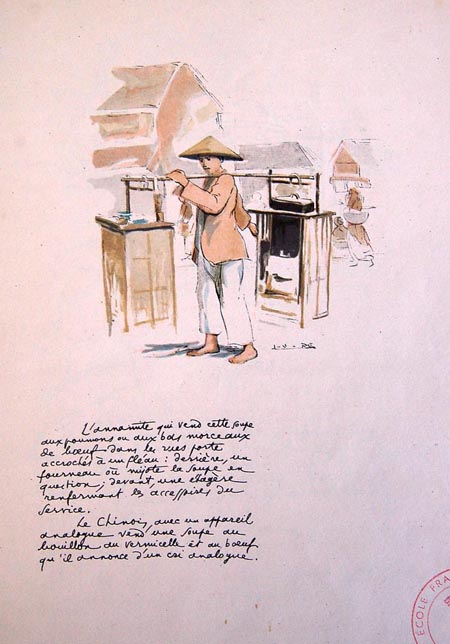 L'annamite qui vend cette soupe
aux poumons ou aux bas morceaux
de bœuf dans les rues porte
accrochés à un fléau : derrière, un
fourneau où mijote la soupe en
question ; devant, une étagère
renfermant les accessoires du
service.
Le Chinois, avec un appareil
analogue vend une soupe au
bouillon au vermicelle et au bœuf
qu'il annonce d'un cri analogue.
ECOLE FRA